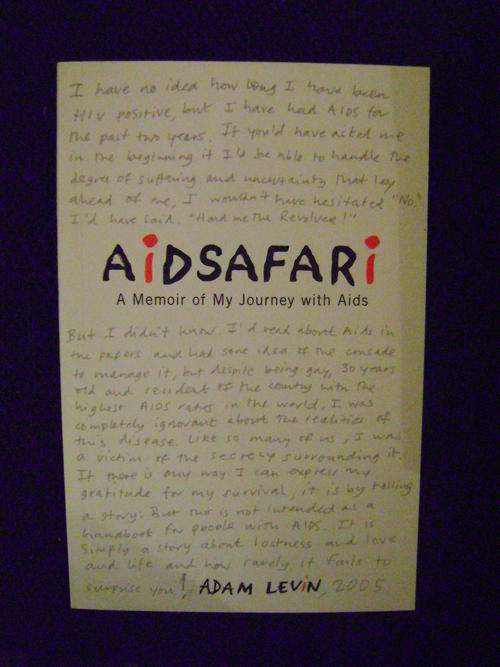 I have no idea how long I have been
HIV positive, but I have had AIDS for
the past two years. If you'd have asked me
in the beginning if I'd be able to handle the
degree of suffering and uncertainty that lay
ahead of me, I wouldn't have hesitated "No,"
I'd have said. "Hand me the Revolver!"
AiDSAFARi
A Memoir of My Journey with Aids
But I didn't know. I'd read about Aids in
the papers and had some idea of the crusade
to manage it, but despite being gay, 30 years
old and resident of the country with the
highest AIDS rates in the world, I was
completely ignorant about the realities of
this disease. Like so many of us, I was
a victim of the secrecy surrounding it.
If there is any way I can express my
gratitude for my survival, it is by telling
a story. But this is not intended as a
handbook for people with AIDS. It is
Simply a story about lostness and love
and life and how rarely it fails to
surprise you! ADAM LEViN, 2005